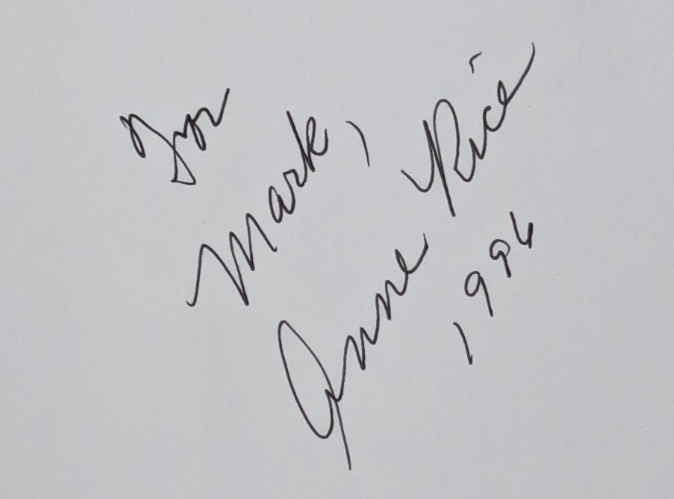 For
Mark,
Anne Rice
1996